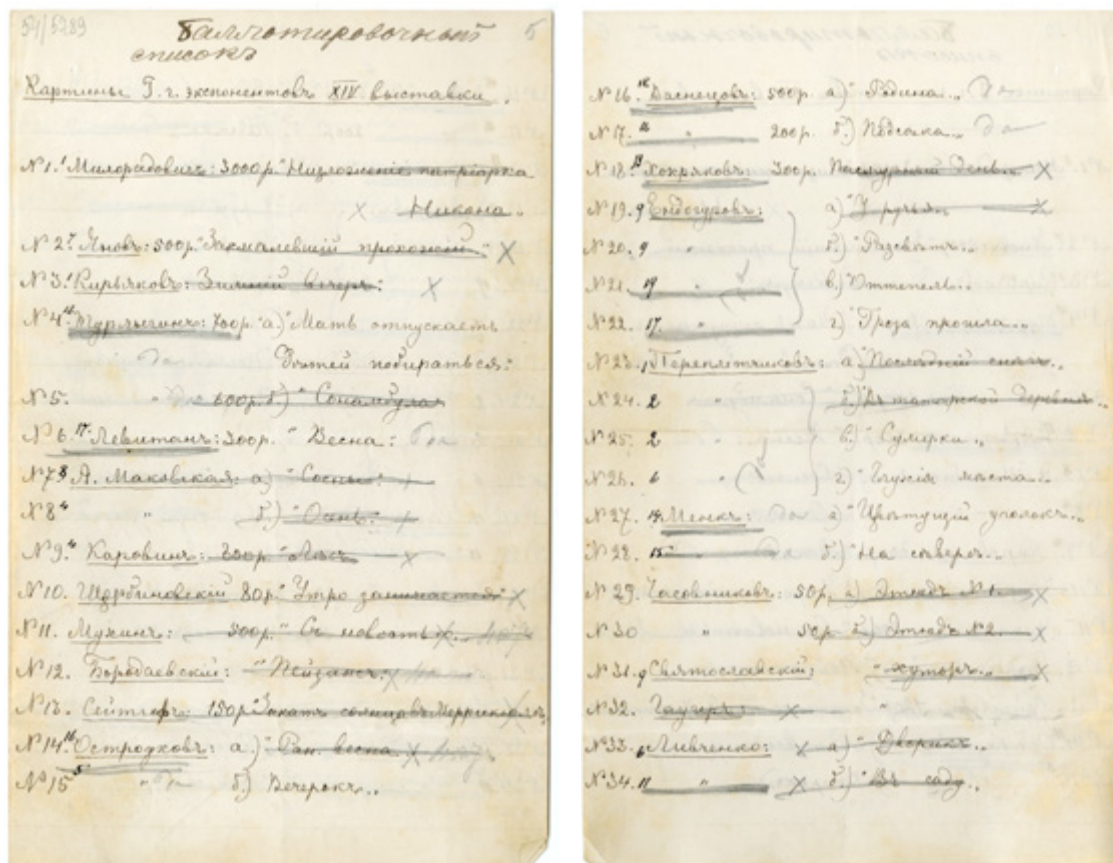 54/5289
Баллотировочный 5
списокъ
Картины Г. г. экспонентовъ XIV выставки.
№ 1. Милорадовичъ: 3000 р. "Низложеніе патріарха
Х Никона.
№ 2. Яновъ: 500 р. "Захмалевшій прохожій" Х
№ 3. Кирьяковъ: Зимній вечеръ: Х
№ 4. Турлыгинъ: 700 р. а) "Мать отпускаетъ
да Дѣтей побираться:
№ 5. " да 600 р. б) "Сонамбула
№ 6. 17 Левитанъ: 300 р. "Весна: да
№ 7. 8 А. Маковская: а) "Сосны: +
№ 8. 4 " б.) "Осень: +
№ 9. 4 Каровинъ: 200 р. "Лѣсъ Х
№ 10. Щербиновскій 80 р. "Утро занимается: Х
№ 11. Мухинъ: 500 р. "Съ новостью Х
№ 12. Бородаевскій: "Пейзажъ: Х
№ 13. Сейтгофъ: 150 р. Закатъ солнца въ
№ 14. 16 Остроуховъ: а.) "Ран. весна Х
№ 15 5 " да б.) Вечерокъ..
№ 16. 12 Васнецовъ: 500 р. а.) "Родина.. Да
№ 17. " 200 р. б.) Подсѣка.. да
№ 18. 13 Хохряковъ: 300 р. Пасмурный День.. Х
№ 19. 9 Ендогуровъ: а) "У ручья.. Х
№ 20. 9 " б.) "Разсвѣтъ..
№ 21. 19 " в.) Оттепель..
№ 22. 17. " г.) "Гроза прошла..
№ 23. 1 Переплетчиковъ: а) "Послѣдній снѣгъ..
№ 24. 2 " б.) "Въ татарской деревнѣ..
№ 25. 2 " в.) "Сумерки..
№ 26. 6 " г.) "Глухія мѣста..
№ 27. 14 Менкъ: да а) "Цвѣтущій уголокъ..
№ 28. 15 " б.) "На сѣверѣ..
№ 29. Часовниковъ: 50 р. а) Этюдъ № 1. Х
№ 30 " 50 р. б.) Этюдъ № 2. Х
№ 31. 9 Святославскій: "хуторъ.. Х
№ 32. Гаугеръ: Х "
№ 33. 6 Ливченко: Х а) "Дворикъ..
№ 34. 11 " Х б.) "Въ саду..